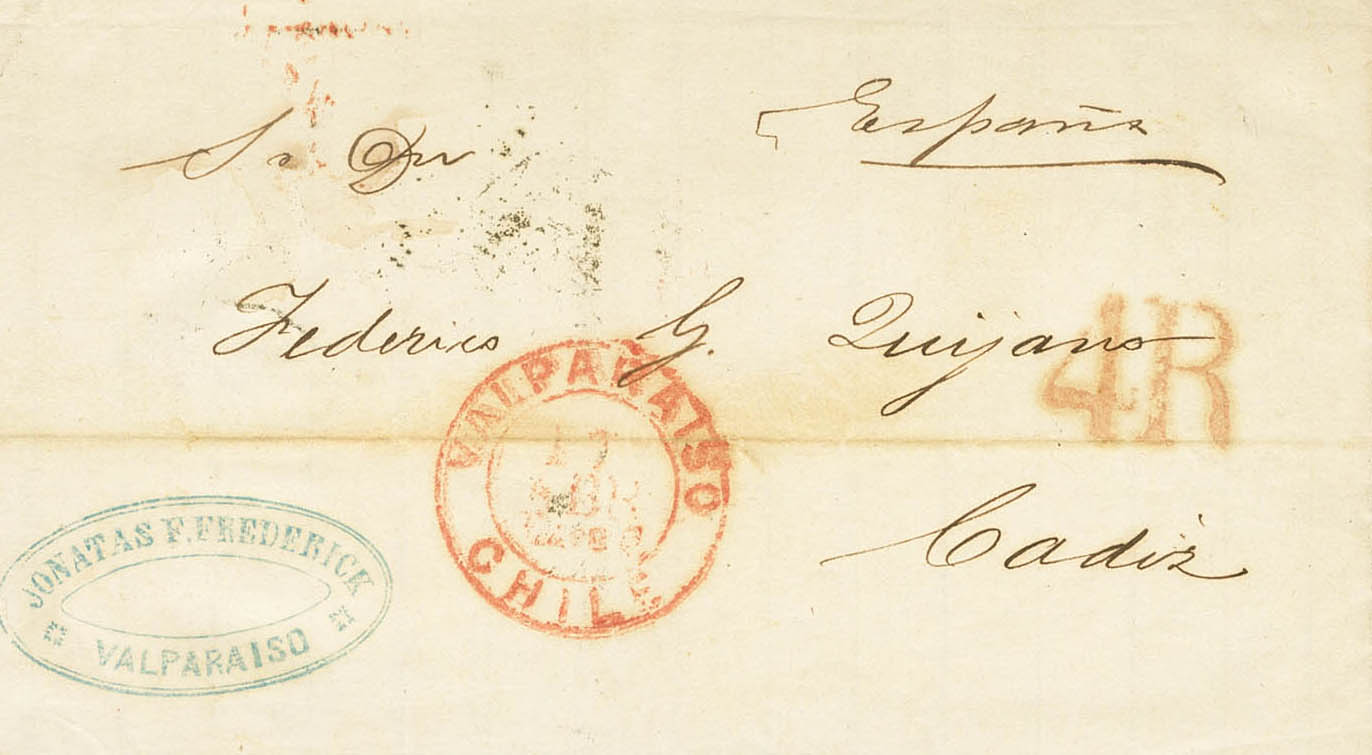 España
Sr Dn
Federico G. Quijano
4R
Cadiz
VALPARAISO
17
CHILE
JONATAS F. FREDERICK
VALPARAISO